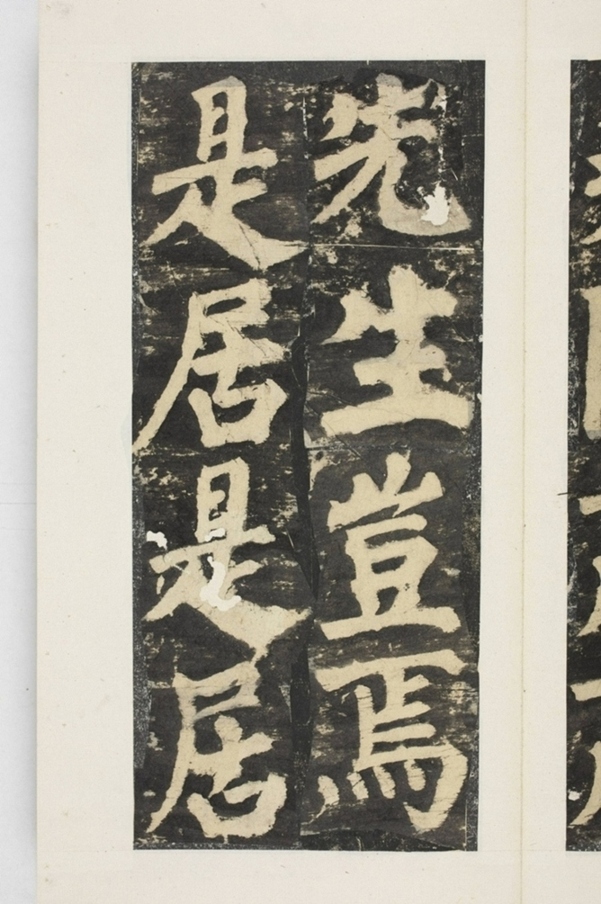 先生豈焉
是居是居